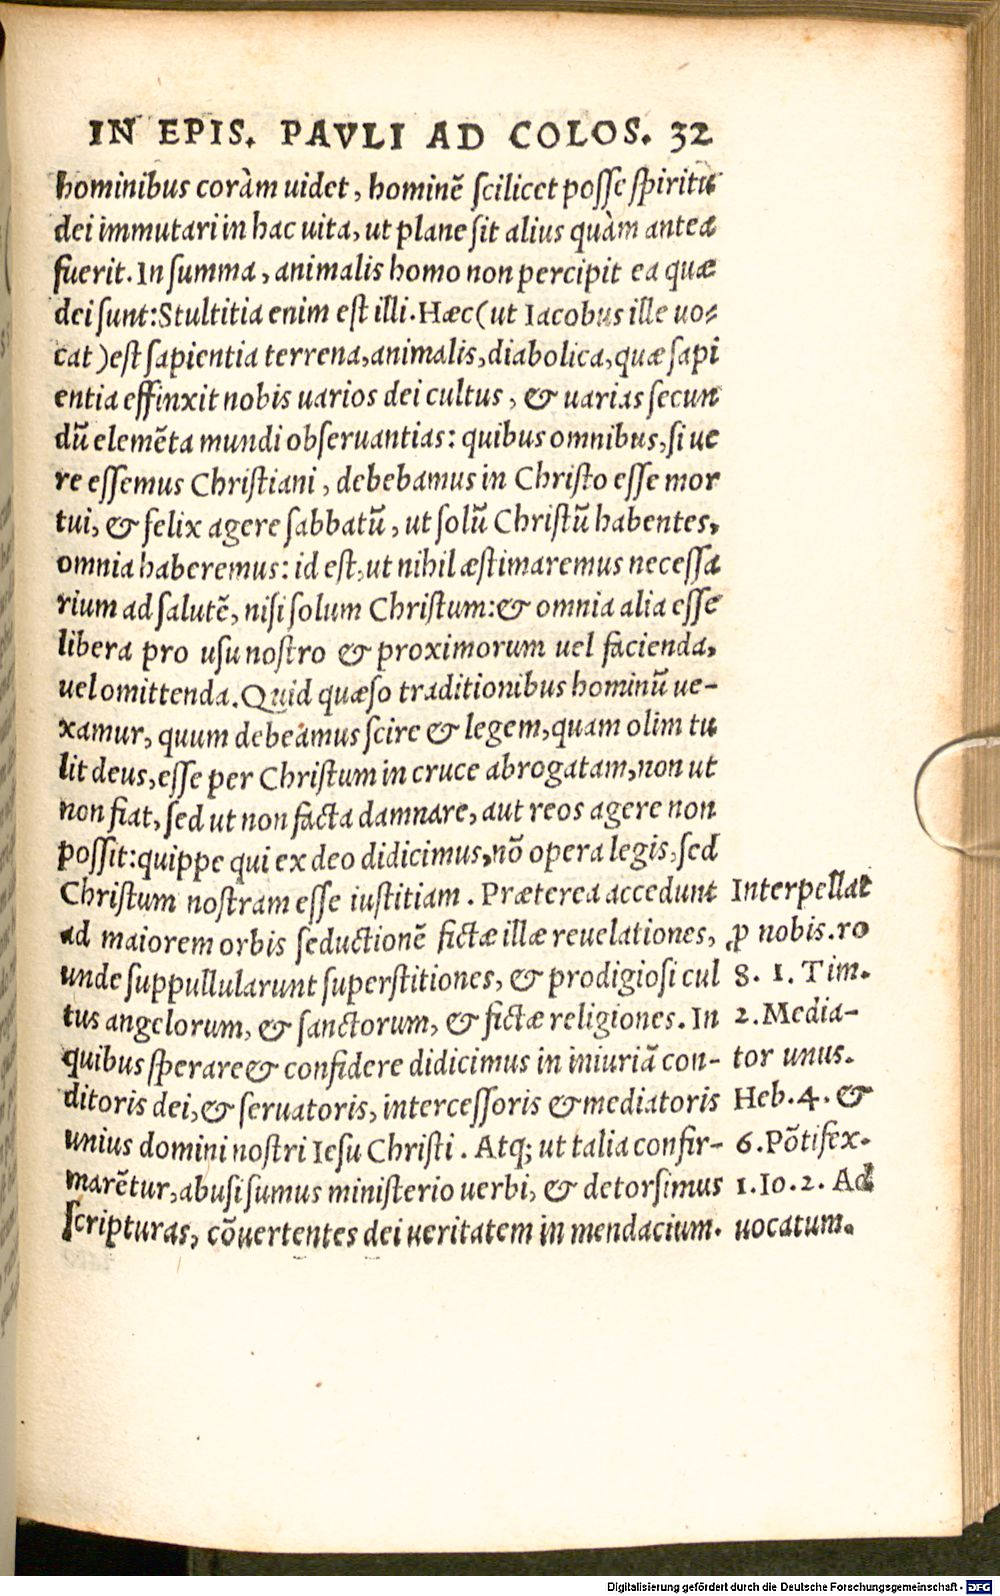 IN EPIS. PAVLI AD COLOS. 32
hominibus coràm uidet, hominē scilicet posse spiritu
dei immutari in hac uita, ut plane sit alius quàm antea
fuerit. In summa, animalis homo non percipit ea quæ
dei sunt: Stultitia enim est illi. Hæc (ut Iacobus ille uo⸗
cat) est sapientia terrena, animalis, diabolica, quæ sapi
entia effinxit nobis uarios dei cultus, & uarias secun
dū elemēta mundi obseruantias: quibus omnibus, si ue
re essemus Christiani, debebamus in Christo esse mor
tui, & felix agere sabbatū, ut solū Christū habentes,
omnia haberemus: id est, ut nihil æstimaremus necessa
rium ad salutē, nisi solum Christum: & omnia alia esse
libera pro usu nostro & proximorum uel facienda,
uel omittenda. Quid quæso traditionibus hominū ue-
xamur, quum debeamus scire & legem, quam olim tu
lit deus, esse per Christum in cruce abrogatam, non ut
non fiat, sed ut non facta damnare, aut reos agere non
possit: quippe qui ex deo didicimus, nō opera legis, sed
Christum nostram esse iustitiam. Præterea accedunt
ad maiorem orbis seductionē fictæ illæ reuelationes,
unde suppullularunt superstitiones, & prodigiosi cul
tus angelorum, & sanctorum, & fictæ religiones. In
quibus sperare & confidere didicimus in iniuriā con-
ditoris dei, & seruatoris, intercessoris & mediatoris
unius domini nostri Iesu Christi. Atq; ut talia confir-
marētur, abusi sumus ministerio uerbi, & detorsimus
scripturas, cōuertentes dei ueritatem in mendacium.
Interpellat
ꝓ nobis. ro
8. 1. Tim.
2. Media-
tor unus.
Heb. 4. &
6. Pōtifex.
1. Io. 2. Ad
uocatum.
Digitalisierung gefördert durch die Deutsche Forschungsgemeinschaft - DFG